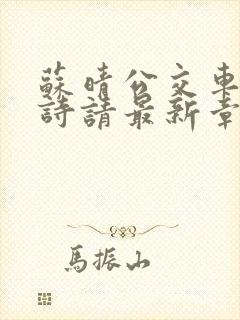 蘇晴公交車
詩請最新章
馬振山